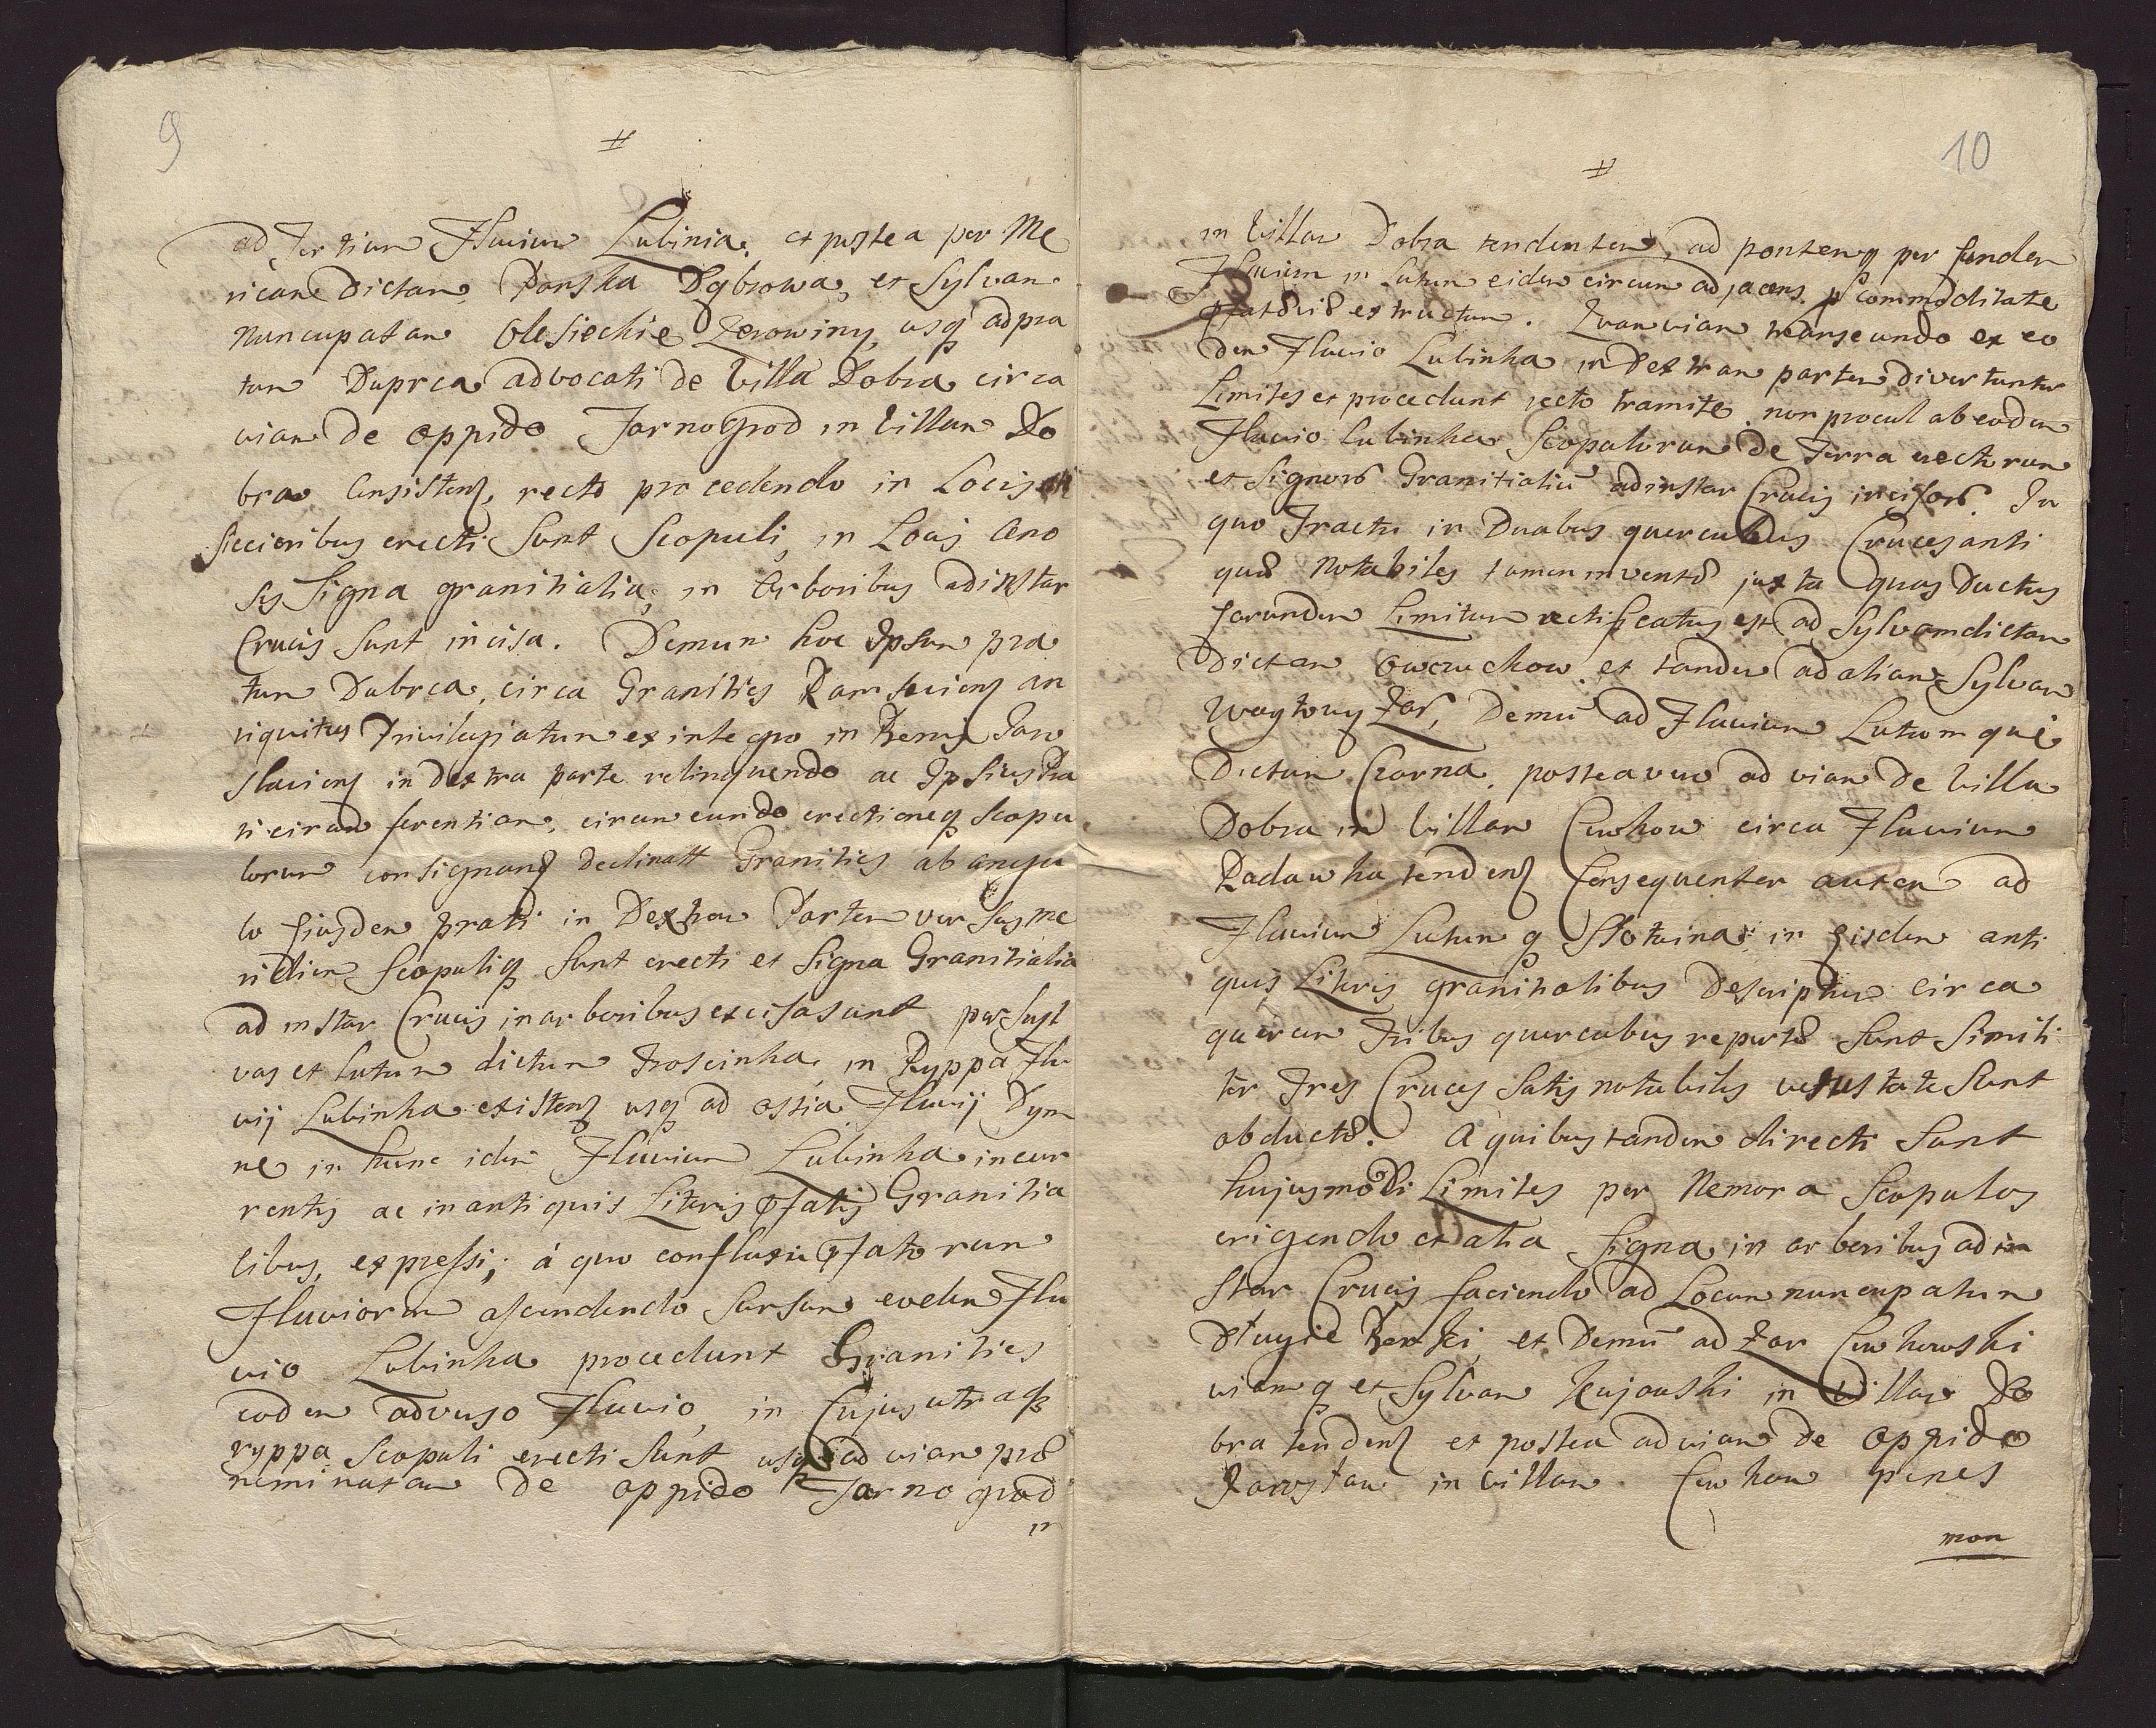 9
#
ad Tertium Fluvium Lubinia. et postea per Me
ricam Dictam Panska Dąbrowa, et Sylvam
nuncupatam Olesieckie Zerowiny usq adpra
tum Duprca advocati de Villa Dobra circa
viam De oppido Tarnogrod in Villam Do
bra Consistens, recto procedendo in Locis
Siccioribus erecti Sunt Scopuli, in Locis Ceno
sis Signa granitialia, in Arboribus adinstar
Crucis Sunt incisa. Demum hoc Ipsum pra
tum Dubrca, circa Granities an
tiquitus Privilegiatum ex integro in Jaro
slaviens in dextra parte relinquendo ac Ipsius Pra
ti circum ferentiam, circum eundo erectioneq Scopu
lorum consignand Declinatt Granities ab angu
lo Eiusdem prati in Dextram Partem versus me
ridiem Scopuliq Sunt erecti et Signa Granitialia
ad instar Crucis in arboribus excisa sunt per Syl
vas et Lutum dictum Troscinka, in Ryppa Flu
vij Lubinka existens usq ad ostia Fluvij Dym
ne in hunc idem Fluvium Lubinka incur
rentis ac in antiquis Literis pfatis Granitia
libus, expressi; á quo confluxu pfato rum
Fluviorum ascendendo Sursum eodem Flu
vio Lubinka procedunt Granities
eodem adverso Fluvio, in Cujus utraq
ryppa Scopuli erecti Sunt usq ad viam prae
neminatam De oppido Tarno grod
in
10
#
in Villam Dobra tendentem, ad pontemq per eundem
Fluvium in Lutum eidem circum adjacens p commoditate
extructum. Quam viam transeundo ex eo
dem Fluvio Lubinka in Dextram partem divertuntur
Limites et procedunt recto tramite non procul ab eodem
Fluvio Lubinka Scopulorum De Terra erectorum
et Signor Granitialiu adinstar Crucis incisor. In
quo Tractu in Duabus quercubus Cruces anti
quae Notabiles tamen inventae juxta quas Ductus
earundem Limitum rectificatus est ad Sylvam dictam
Dictam Owczuchow. et tandem ad aliam Sylvam
Demu ad Fluvium Lutumque
Dictum Czorna, postea vero ad viam De Villa
Dobra in Villam Cewkow circa Fluvium
Radawka tendens Consequenter autem ad
Fluvium Lutumq Słotwina in Eisdem anti
quis Literis granitialibus Descriptum Circa
quorum Tribus quercubus repertae Sunt Simili
ter Tres Cruces Satis notabiles vetustate Sunt
obductae. A quibus tandem directi Sunt
hujusmodi Limites per Nemora Scopulos
erigendo et alia Signa in arboribus ad in
star Crucis faciendo ad Locum nuncupatum
Długie et Demu ad Zar Cewkowski
viamq et Sylvam Kujawski in Villam Do
bra tendens et postea ad viam De Oppido
Jarosław in Villam Cewkow penes
mon